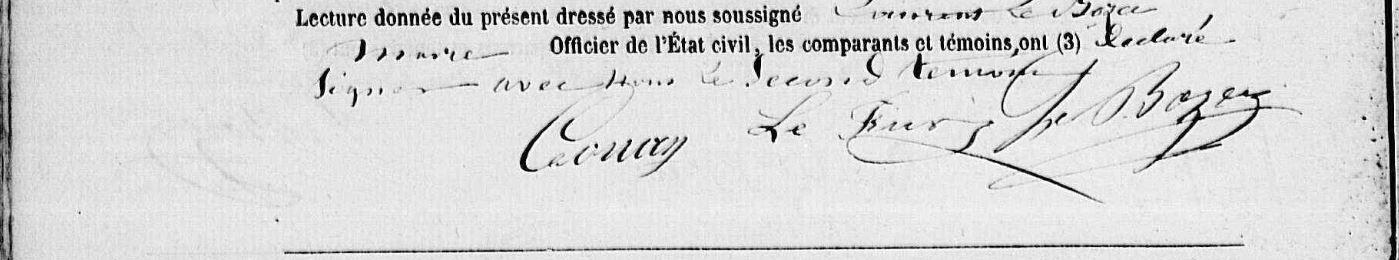 Lecture donnée du présent dressé par nous soussigné Laurent Le Bozec
Maire Officier de l'État civil, les comparants et témoins, ont (3) déclaré
Signer avec Nous le Second témoin
Conan Le Le Bozec